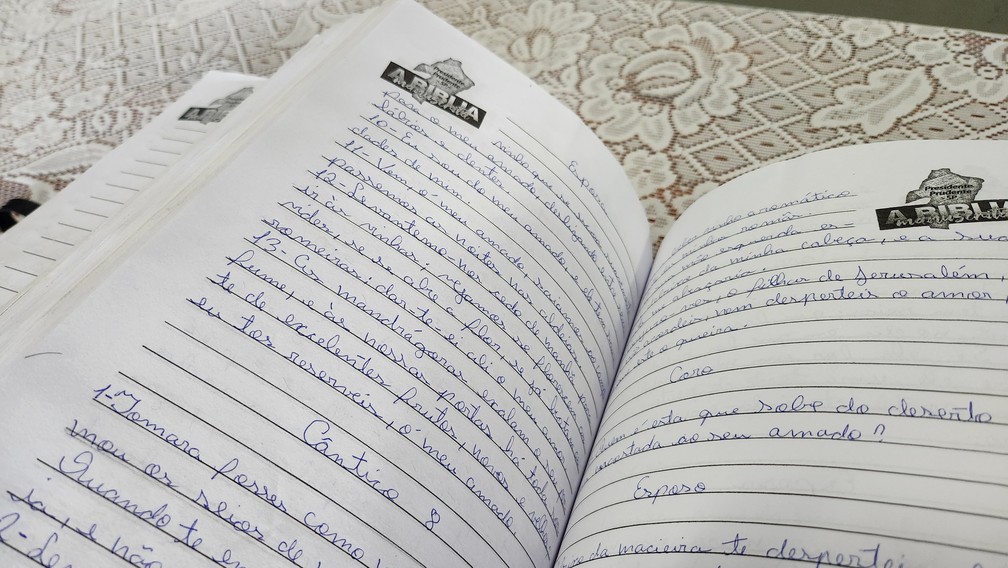 Presidente
Prudente
A BIBLIA
manuscrita
Esposa
para o meu amado
lábios e dentes.
10- Eu sou do meu amado, e ele tem
dades de mim.
11- Vem, ó meu amado, saiamos ao campo
passemos as noites nas aldeias
12- Levantemo-nos cedo de manhã
ir às vinhas; vejamos se florescem as
vides, se se abre a flor, se já brotam as
romeiras; dar-te-ei ali o meu amor.
13- As mandrágoras exalam o seu per
fume, e às nossas portas há toda sor
te de excelentes frutos, novos e velhos
eu tos reservei, ó meu amado.
Cântico 8
1- Tomara fosses como
mou os seios de
Quando te en
ia, e não
2- Le
Presidente
Prudente
SP
A BIBLIA
manuscrita
vinho aromático
romãs.
esquerda es-
da minha cabeça, e a sua
abraçaria.
ó filhas de Jerusalém
nem desperteis o amor
o queira.
Coro
é esta que sobe do deserto
ao seu amado?
Esposo
da macieira te despertei